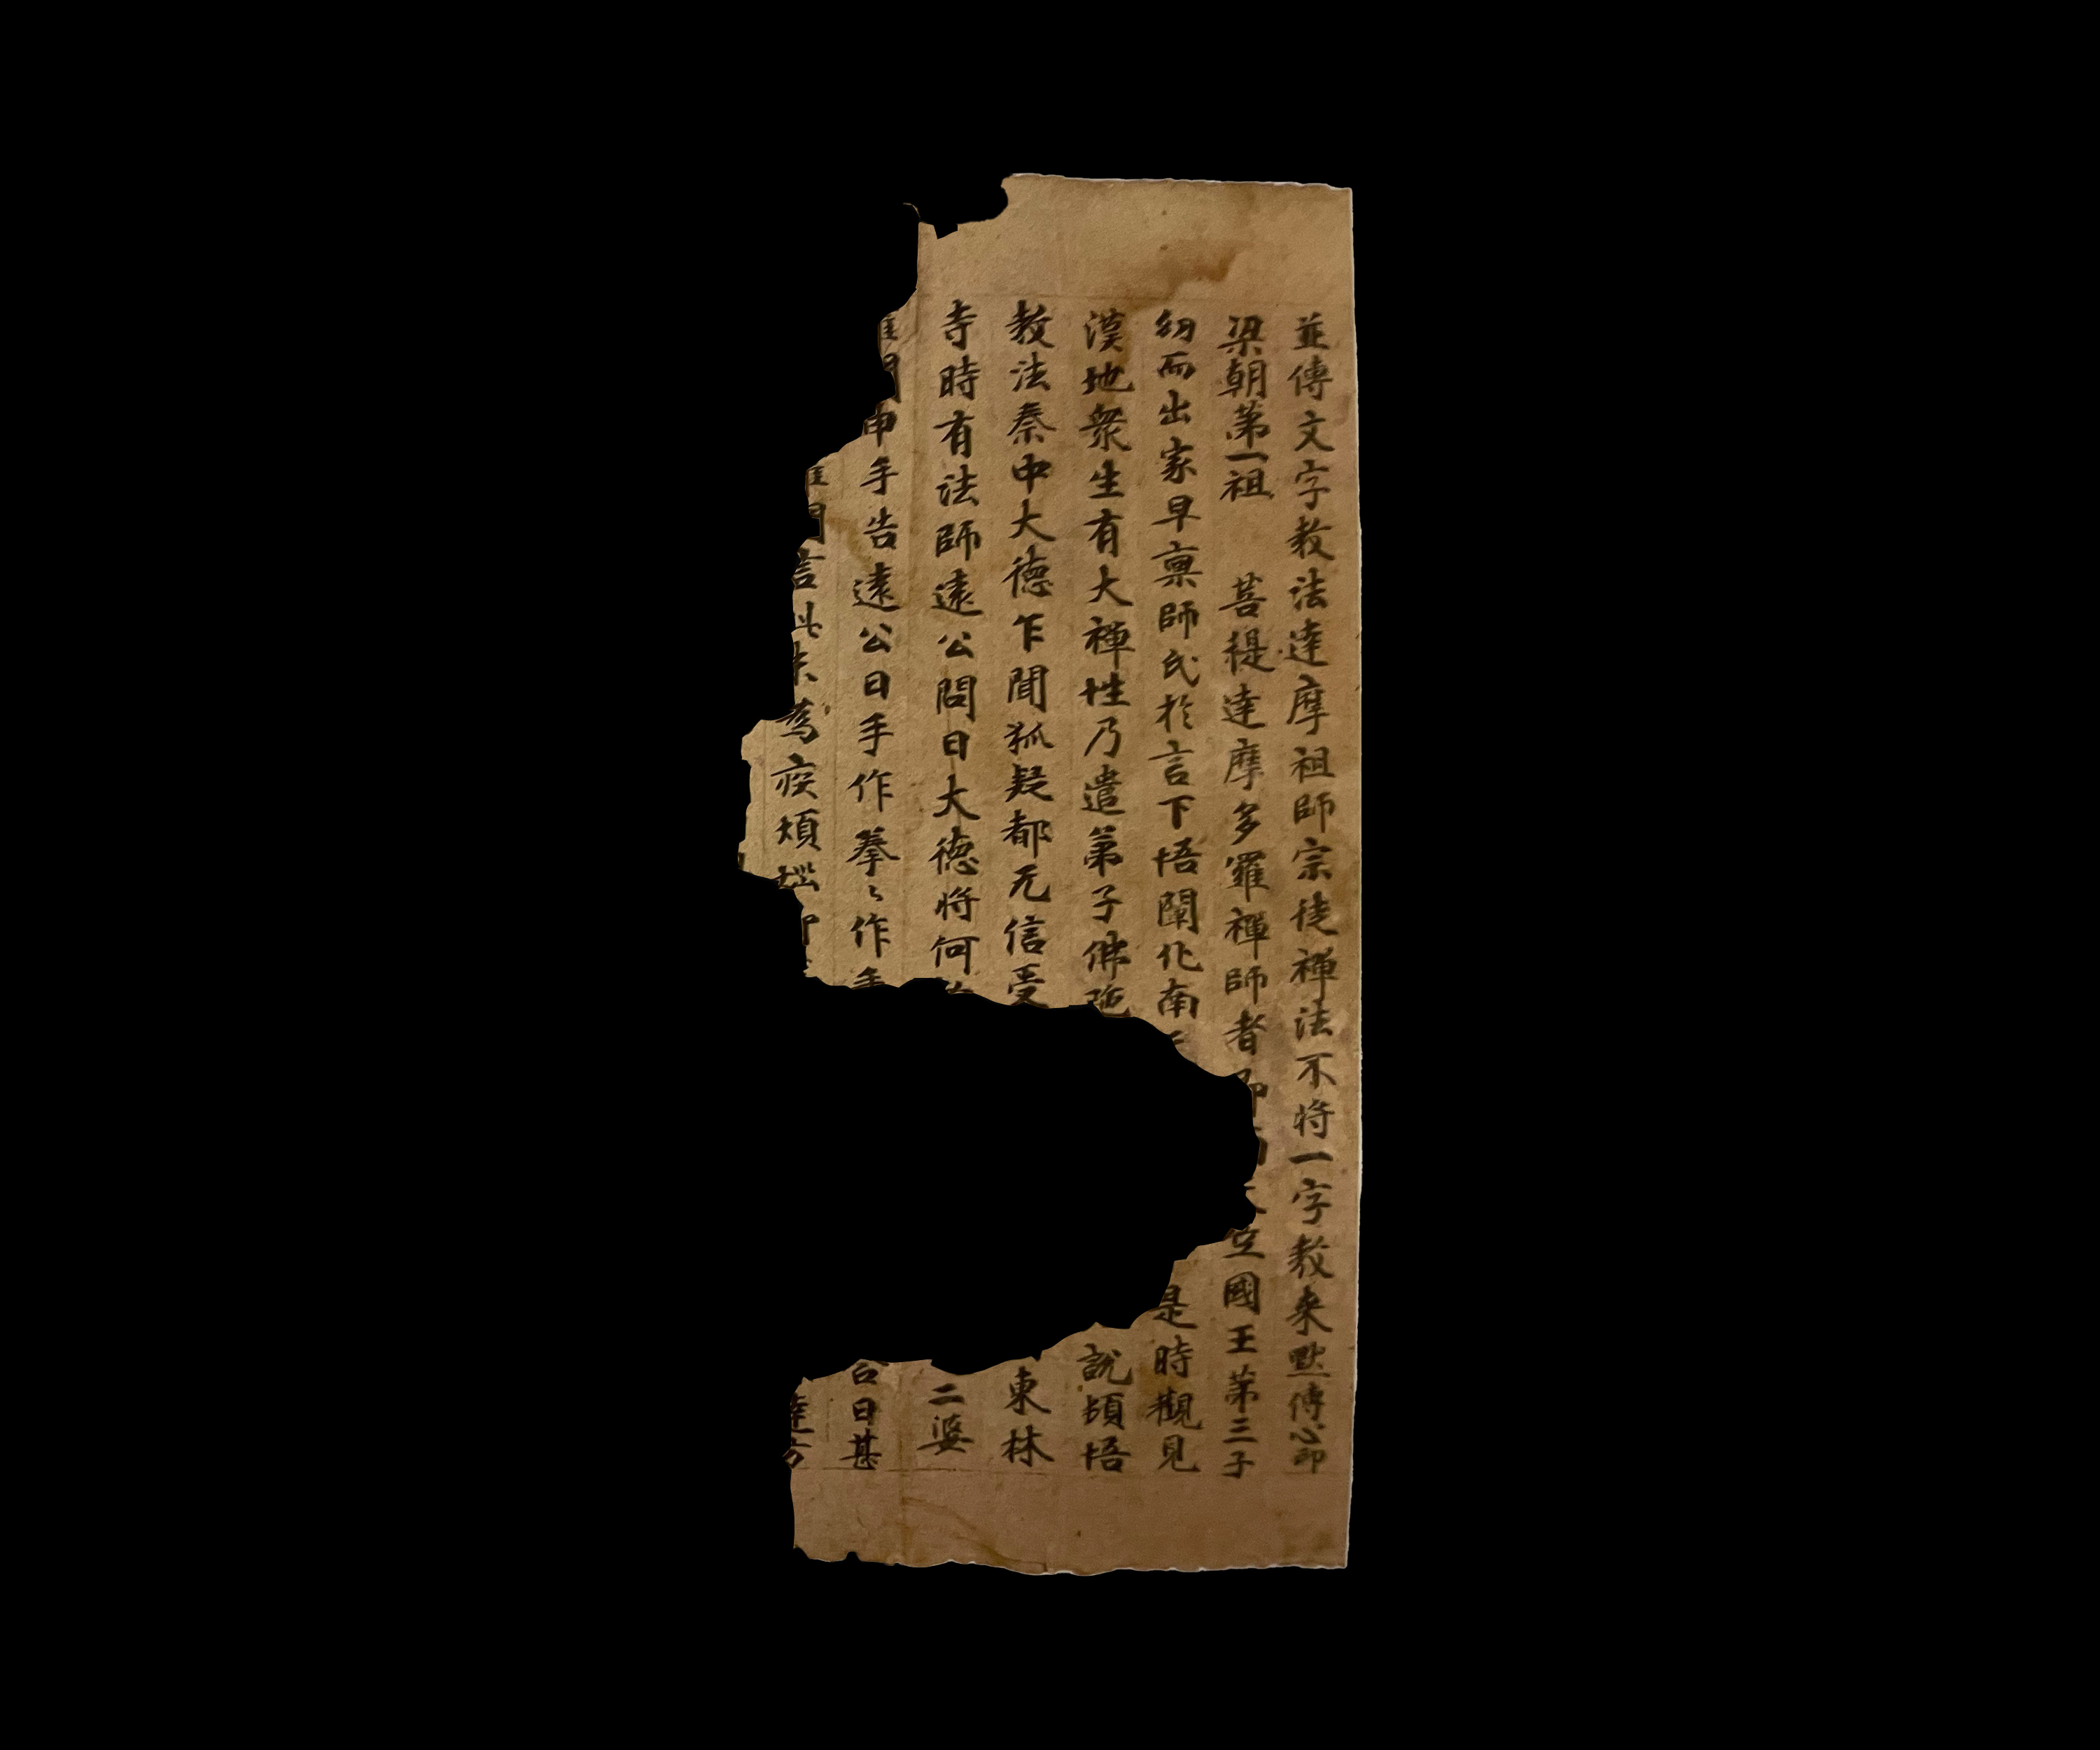 並傳文字教法達摩祖師宗徒禪法不将一字教来黙傳心印
梁朝苐一祖 菩提達摩多羅禪師者即 空國王苐三子
紉而出家早禀師氏於言下悟闡化南 是時觀見
漢地衆生有大禪性乃遣苐子佛陁 説頓悟
教法秦中大德乍聞狐疑都无信受 東林
寺時有法師遠公問曰大德将何 二婆
申手告遠公曰手作拳〻作手 公曰甚
言此未為疾煩惱即 達方